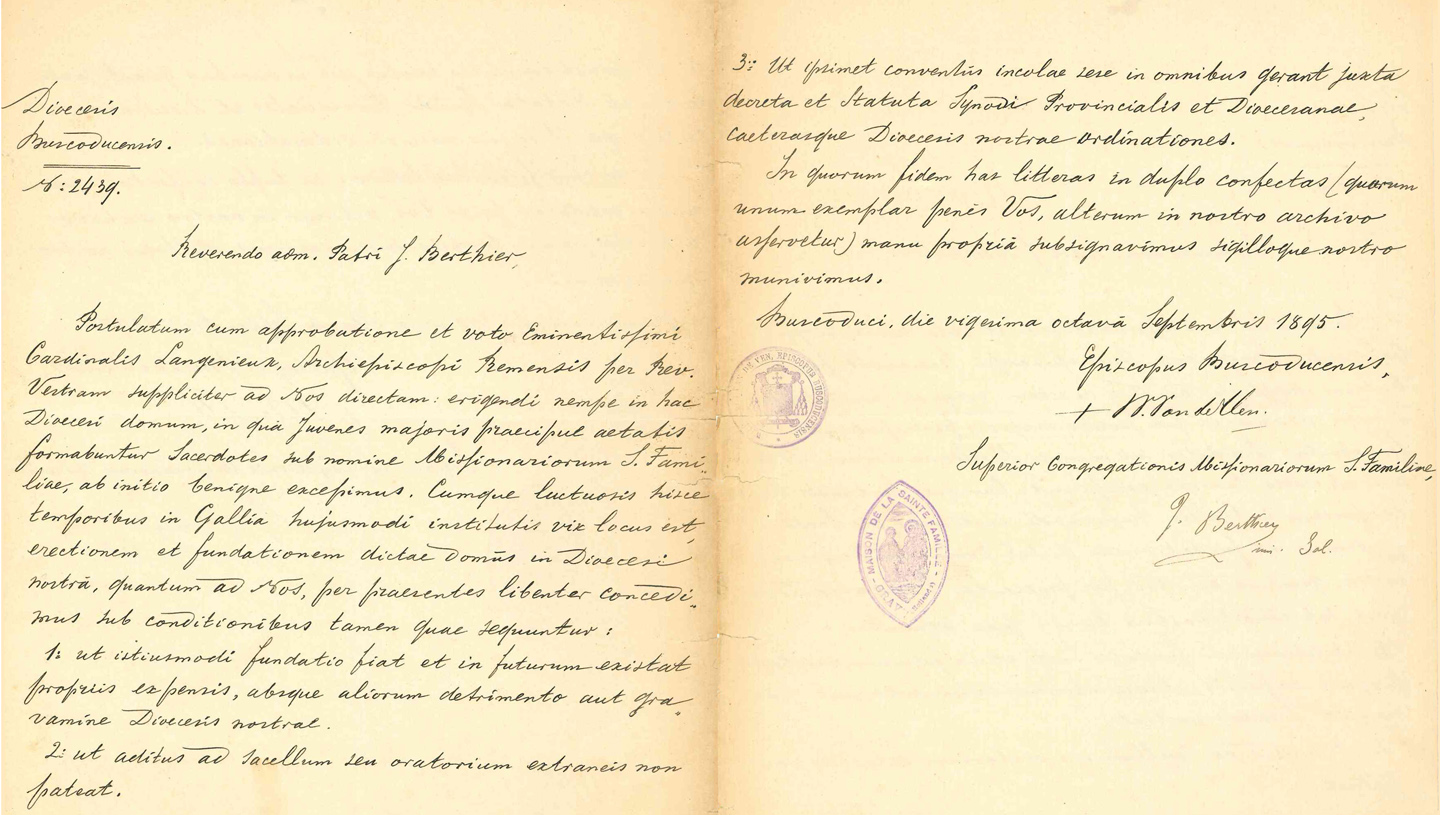 Dioecesis
Buscoducensis.
N: 2439.
Reverendo adm. Patri J. Berthier,
Postulatum cum approbatione et voto Eminentissimi
Cardinalis Langenieux, Archiepiscopi Remensis per Rev.
Vestram suppliciter ad Nos directam: erigendi nempe in hac
Dioecesi domum, in quâ Juvenes majoris praecipue aetatis
formabuntur Sacerdotes sub nomine Missionariorum S. Fami-
liae, ab initio benigne excepimus. Cumque luctuosis hisce
temporibus in Gallia hujusmodi institutis vix locus est,
erectionem et fundationem dictae domûs in Dioecesi
nostrâ, quantum ad Nos, per praesentes libenter concedi-
mus sub conditionibus tamen quae sequuntur:
1: ut istiusmodi fundatio fiat et in futurum existat
propriis expensis, absque aliorum detrimento aut gra-
vamine Dioecesis nostrae.
2: ut aditus ad sacellum seu oratorium extraneis non
pateat.
3: Ut ipsimet conventûs incolae sese in omnibus gerant juxta
decreta et Statuta Synodi Provincialis et Dioecesanae,
caeterasque Dioecesis nostrae ordinationes.
In quorum fidem has litteras in duplo confectas (quorum
unum exemplar penès Vos, alterum in nostro archivo
asservetur) manu propriâ subsignavimus sigilloque nostro
munivimus.
Buscoduci, die vigesima octavâ Septembris 1895.
Episcopus Buscoducensis,
+ W. Van de Ven.
DE VEN, EPISCOPUS BUSCODUCENSIS
Superior Congregationis Missionariorum S. Familiae,
J. Berthier
mi. Sal.
MAISON DE LA SAINTE FAMILLE
GRAVE